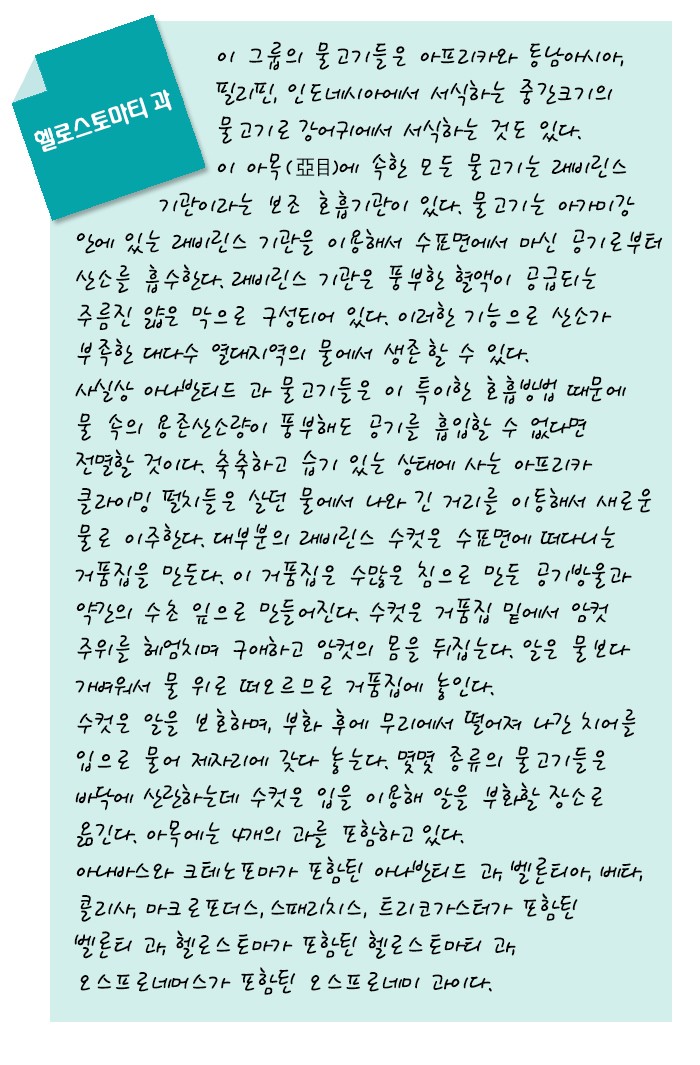 헬로스토마티 과
이 그룹의 물고기들은 아프리카와 동남아시아,
필리핀, 인도네시아에서 서식하는 중간크기의
물고기로 강어귀에서 서식하는 것도 있다.
이 아목(亞目)에 속한 모든 물고기는 래비린스
기관이라는 보조 호흡기관이 있다. 물고기는 아가미강
안에 있는 래비린스 기관을 이용해서 수표면에서 마신 공기로부터
산소를 흡수한다. 래비린스 기관은 풍부한 혈액이 공급되는
주름진 얇은 막으로 구성되어 있다. 이러한 기능으로 산소가
부족한 대다수 열대지역의 물에서 생존할 수 있다.
사실상 아나반티드 과 물고기들은 이 특이한 호흡방법 때문에
물 속의 용존산소량이 풍부해도 공기를 흡입할 수 없다면
전멸할 것이다. 축축하고 습기 있는 상태에 사는 아프리카
클라이밍 펄치들은 살던 물에서 나와 긴 거리를 이동해서 새로운
물로 이주한다. 대부분의 래비린스 수컷은 수표면에 떠다니는
거품집을 만든다. 이 거품집은 수많은 침으로 만든 공기방울과
약간의 수초 잎으로 만들어진다. 수컷은 거품집 밑에서 암컷
주위를 헤엄치며 구애하고 암컷의 몸을 뒤집는다. 알은 물보다
가벼워서 물 위로 떠오르므로 거품집에 놓인다.
수컷은 알을 보호하며, 부화 후에 무리에서 떨어져 나간 치어를
입으로 물어 제자리에 갖다 놓는다. 몇몇 종류의 물고기들은
바닥에 산란하는데 수컷은 입을 이용해 알을 부화할 장소로
옮긴다. 아목에는 4개의 과를 포함하고 있다.
아나바스와 크테노포마가 포함된 아나반티드 과, 벨론티아, 베타,
콜리사, 마크로포더스, 스패리치스, 트리코가스터가 포함된
벨론티 과, 헬로스토마가 포함된 헬로스토마티 과,
오스프로네머스가 포함된 오스프로네미 과이다.